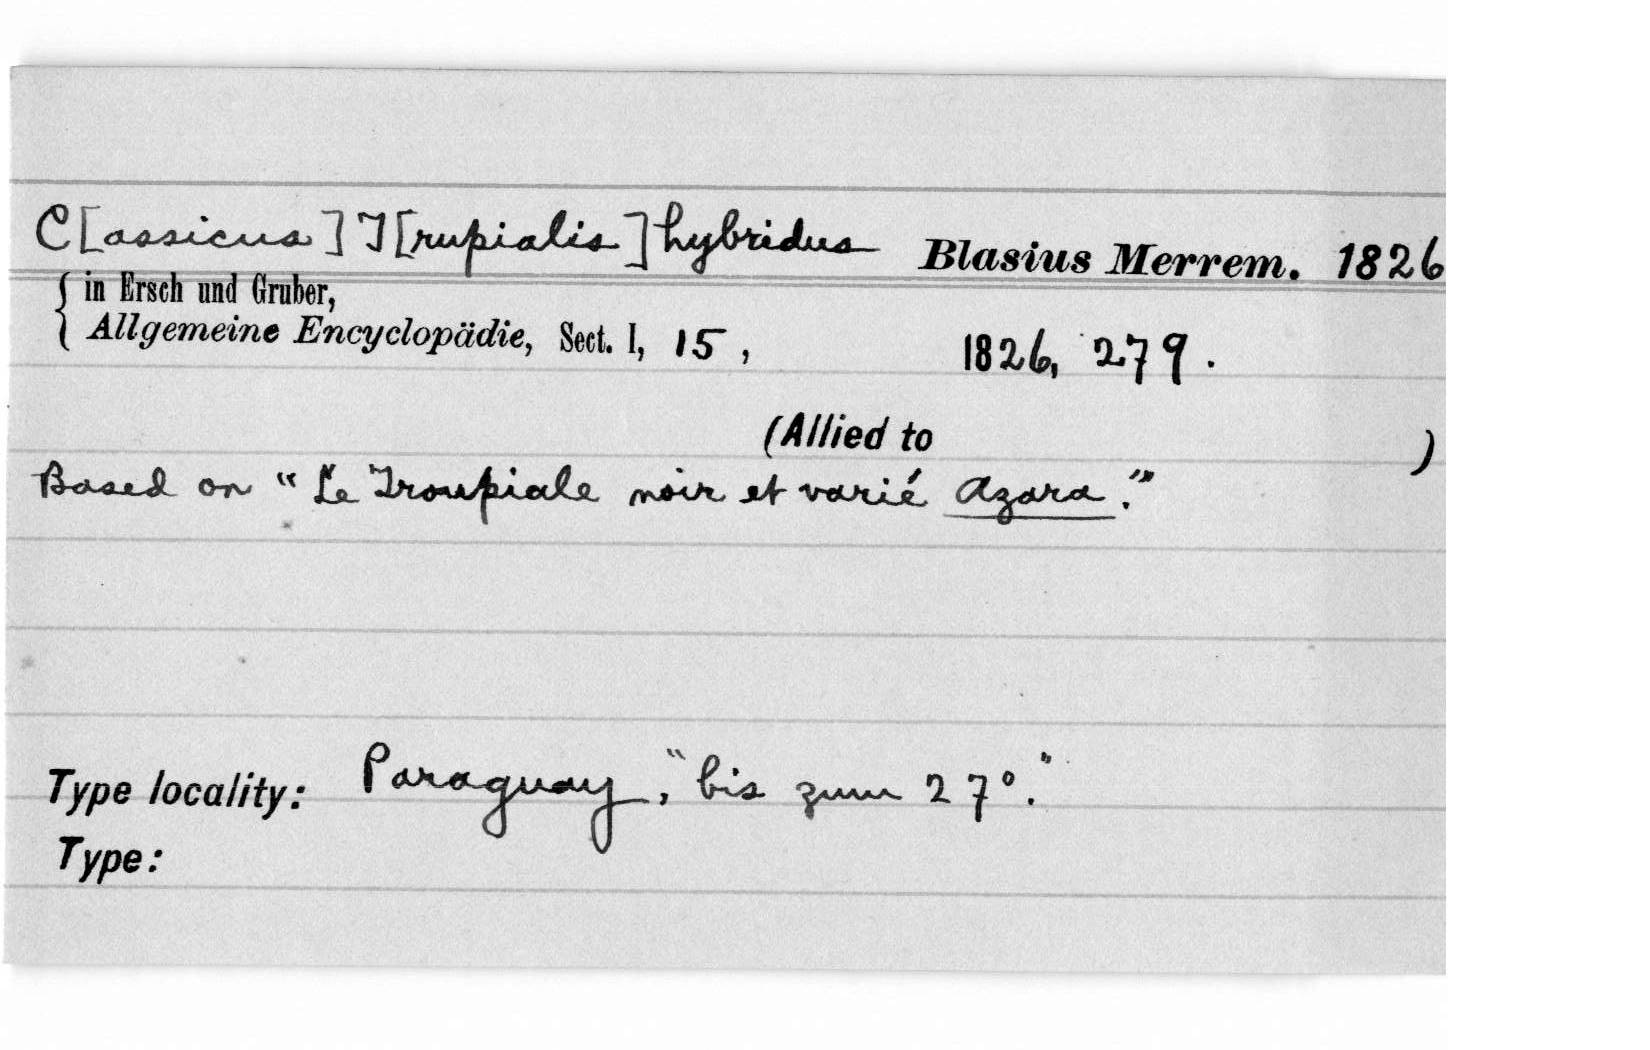 C[assicus] T[rupialis] hybridus Blasius Merrem. 1826
in Ersch und Gruber,
Allgemeine Encyclopädie, Sect. I, 15, 1826, 279.
(Allied to )
Based on "Le Troupiale noir et varié Azara."
Type locality: Paraguay, "bis zum 27°."
Type: